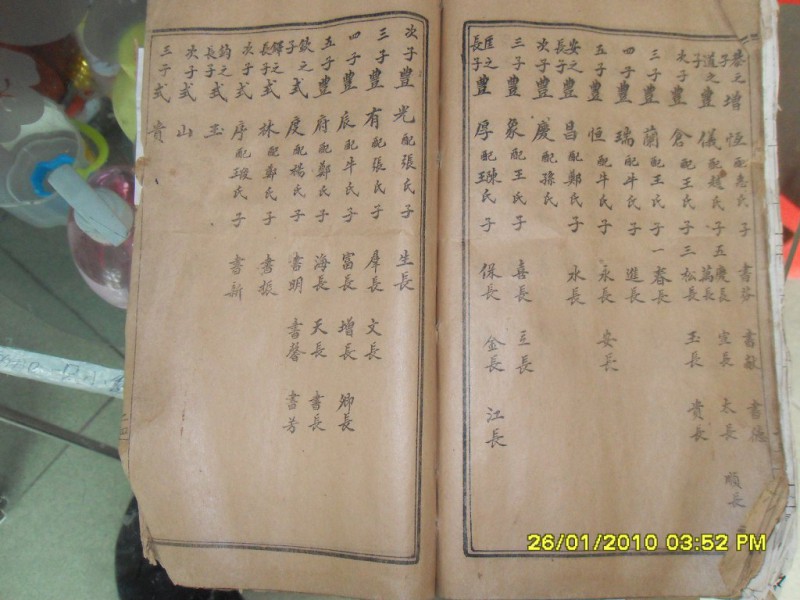 泰之子增恒配惠氏子書芬書敏書德
道之子豐儀配趙氏子五慶長萬長宝長太長順長
次子豐倉配王氏子三松長玉長貴長
三子豐蘭配王氏子一春長
四子豐瑞配牛氏子進長
五子豐恒配牛氏子永長安長
安之長子豐昌配鄭氏子水長
次子豐慶配孫氏
三子豐象配王氏子喜長豆長
匡之長子豐厚配陳氏王氏子保長金長江長
次子豐光配張氏子生長
三子豐有配張氏子羣長文長
四子豐辰配牛氏子富長增長卿長
五子豐府配鄭氏子海長天長書長
欽之子式度配楊氏子書明書馨書芳
鐸之長子式林配鄭氏子書振
次子式序配段氏王氏子書新
鈞之長子式玉
次子式山
三子式貴
26/01/2010 03:52 PM